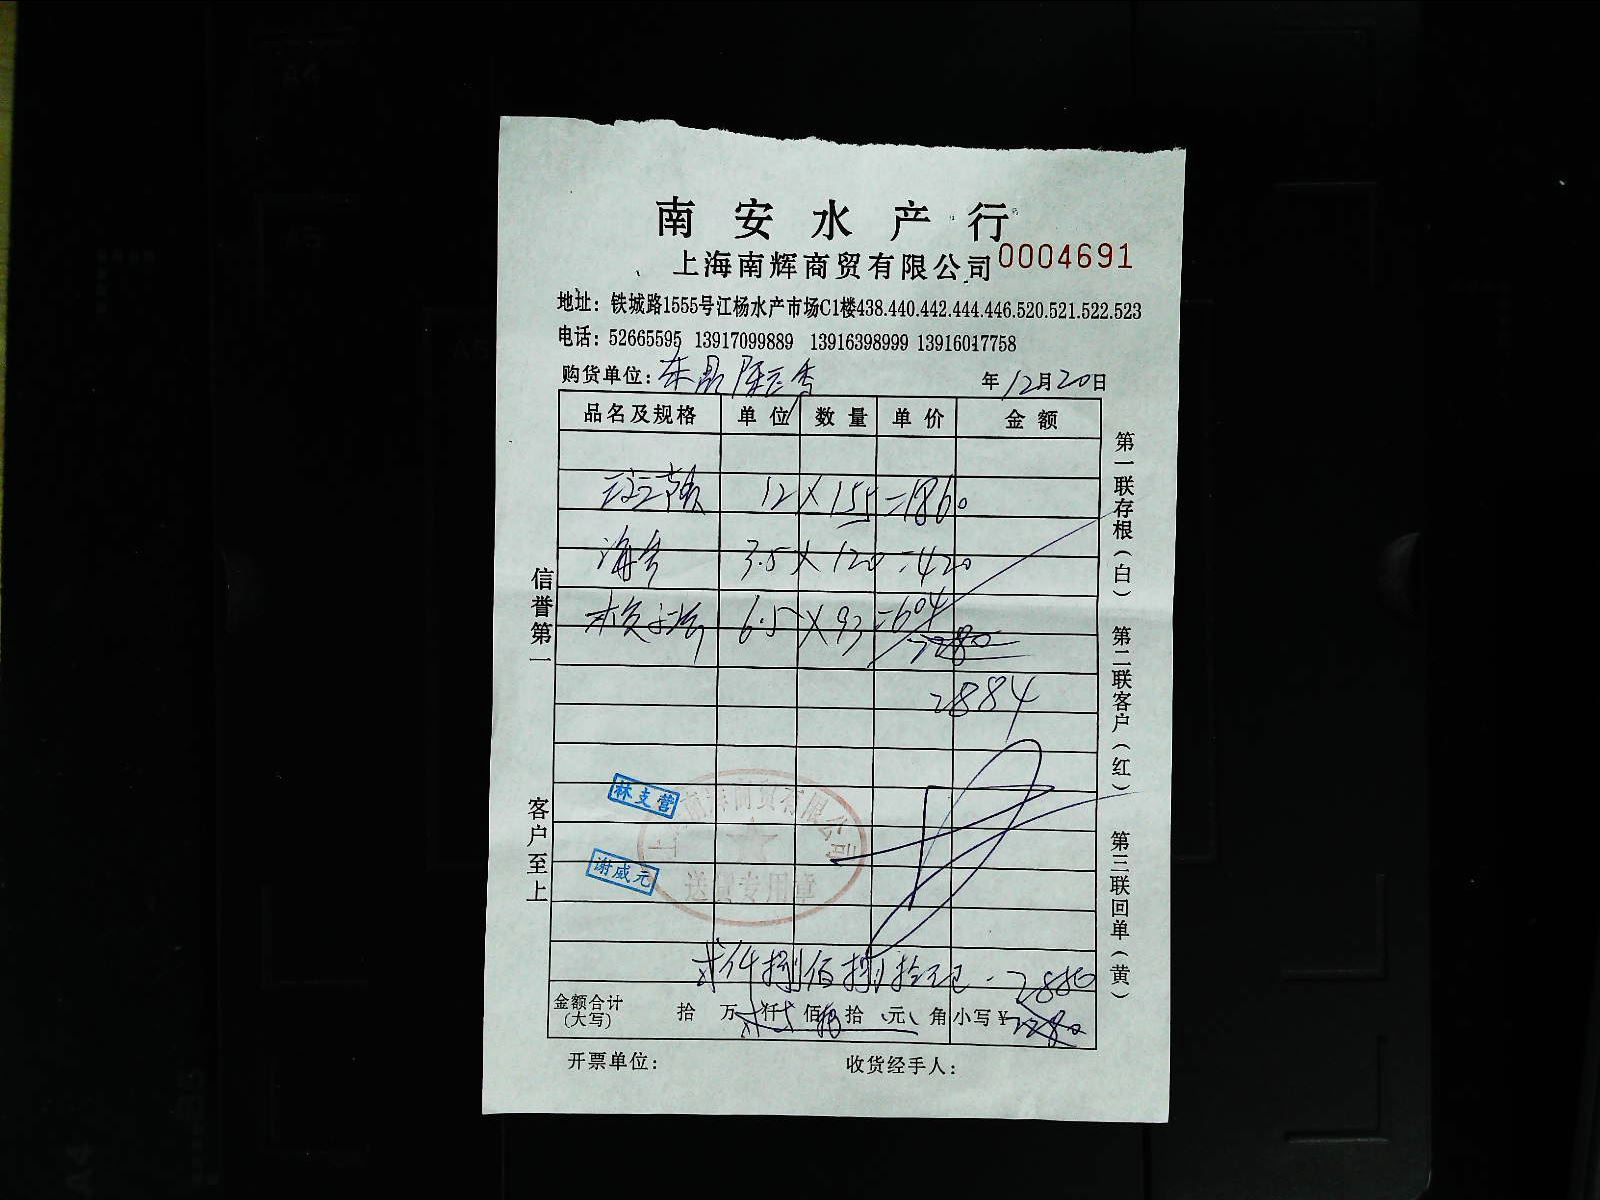 南安水产行
上海南辉商贸有限公司 0004691
地址：铁城路1555号江杨水产市场C1楼438.440.442.444.446.520.521.522.523
电话：52665595 13917099889 13916398999 13916017758
购货单位： 年12月20日
品名及规格 单位 数量 单价 金额
12×155=1860
海 3.5×120=420
6.5×93=604
2280
2884
林支营
上海南辉商贸有限公司
谢威元
送货专用章
贰仟捌佰捌拾元 2880
金额合计(大写) 拾 万 仟 佰 拾 元 角 小写¥2280
开票单位： 收货经手人：
信誉第一
客户至上
第一联存根(白) 第二联客户(红) 第三联回单(黄)